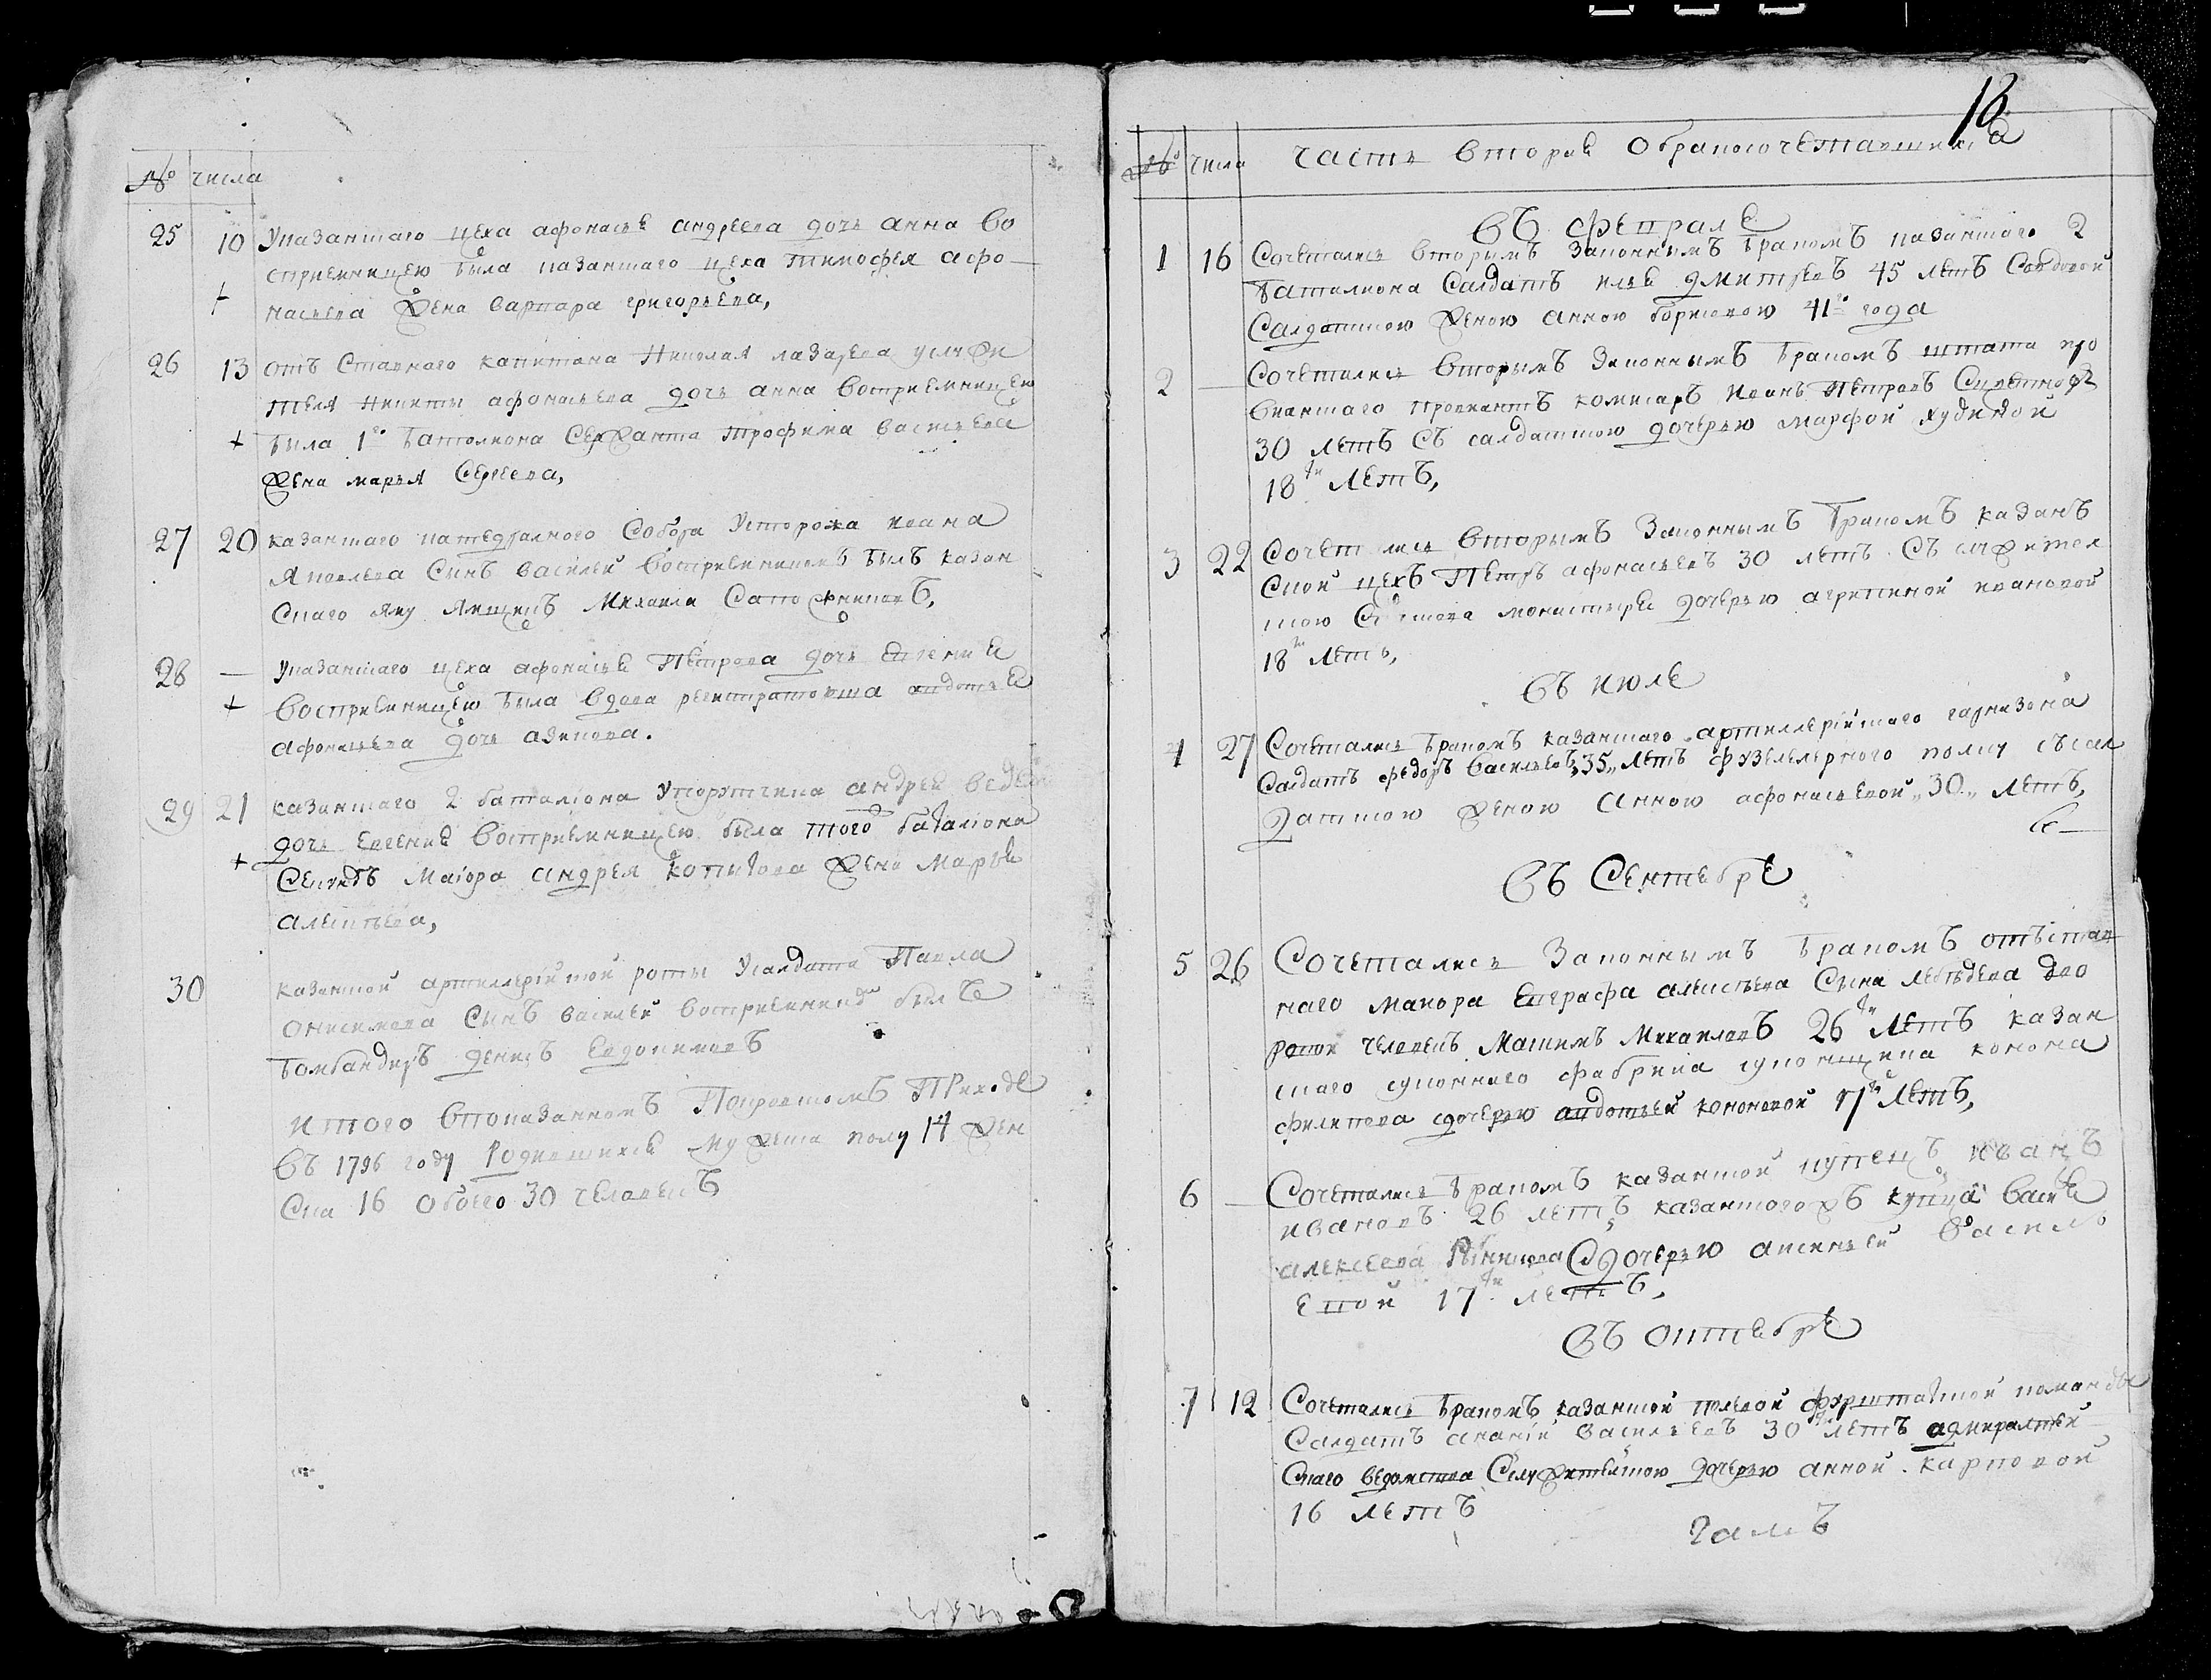 № числа
25 10 Указанскаго цеха афонасья андреева дочь анна во
сприемницею была казанскаго цеха тимофея афо
+ насьева жена варвара григорьева,
26 13 отъ Ставного капитана Николая лазарева услужи
теля Никиты афонасьева дочь анна восприемницею
+ была 1го баталиона Сержанта трофима васильева
жена марья Сергеева,
27 20 казанскаго катедралного Собора Усторожа ивана
Яковлева Сынъ василей восприемникомъ былъ казан
скаго яму Ямщикъ Михаила Сапожниковъ,
28 — Указанскаго цеха афонасья Петрова дочь евгения
+ восприемницею была вдова регистраторша авдотья
Афонасьева дочь азекова.
29 21 казанскаго 2 баталиона Упорутчика андрея
дочь Евгения восприемницею была того баталиона
+ Секундъ Маіора андрея копитова жена Марья
алексеева,
30 казанской артиллерійской роты Усалдата Павла
онисимова Сынъ василей восприемникомъ былъ
бомбандиръ денисъ Евдокимовъ
итого впоказанномъ Покровскомъ Приходе
въ 1796 году Родившихся мужеска полу 14 жен
ска 16 обоего 30 человекъ
18
№ числа часть вторая обракосочетавшихся
въ феврале
1 16 Сочетались вторымъ Законнымъ бракомъ казанскаго 2
баталиона Салдатъ илья дмитреевъ 45 летъ Совдовой
Салдатскою женою анною борисовою 41го года
2 — Сочетались вторымъ Законнымъ бракомъ штата про
виантскаго провиантъ комисаръ иванъ Петровъ
30 летъ Съ салдатскою дочерью марфой худяковой
18ти летъ,
3 22 Сочетались вторымъ Законнымъ бракомъ казанъ
ской цехъ Петръ афонасьевъ 30 летъ Съ служител
скою монастыря дочерью агрипиной ивановой
18ти летъ,
въ июле
4 27 Сочетались бракомъ казанскаго артиллерійскаго гарнизона
Салдатъ федоръ васильевъ „35„ летъ фузелелерного полку съсал
датскою женою анною афонасьевой „30„ летъ,
въ Сентебре
5 26 Сочетались Законнымъ бракомъ отъстав
наго маиора Евграфа алексеева Сына лебедева дво
ровой человекъ Максимъ Михаиловъ 26ти летъ казан
скаго суконнаго фабрика суконщика конона
филипова сдочерью авдотьей кононовой 17ти летъ,
6 — Сочетались бракомъ казанской купецъ иванъ
ивановъ 26 летъ казанскогожъ купца васи
алексеева Сдочерью аксиньей Василь
евой 17ти летъ,
въ октебре
7 12 Сочетались бракомъ казанской полевой фурштатской команды
Салдатъ ананій васильевъ 30ти летъ адмиралтей
скаго ведомства Служительскою дочерью анной карповой
16 летъ